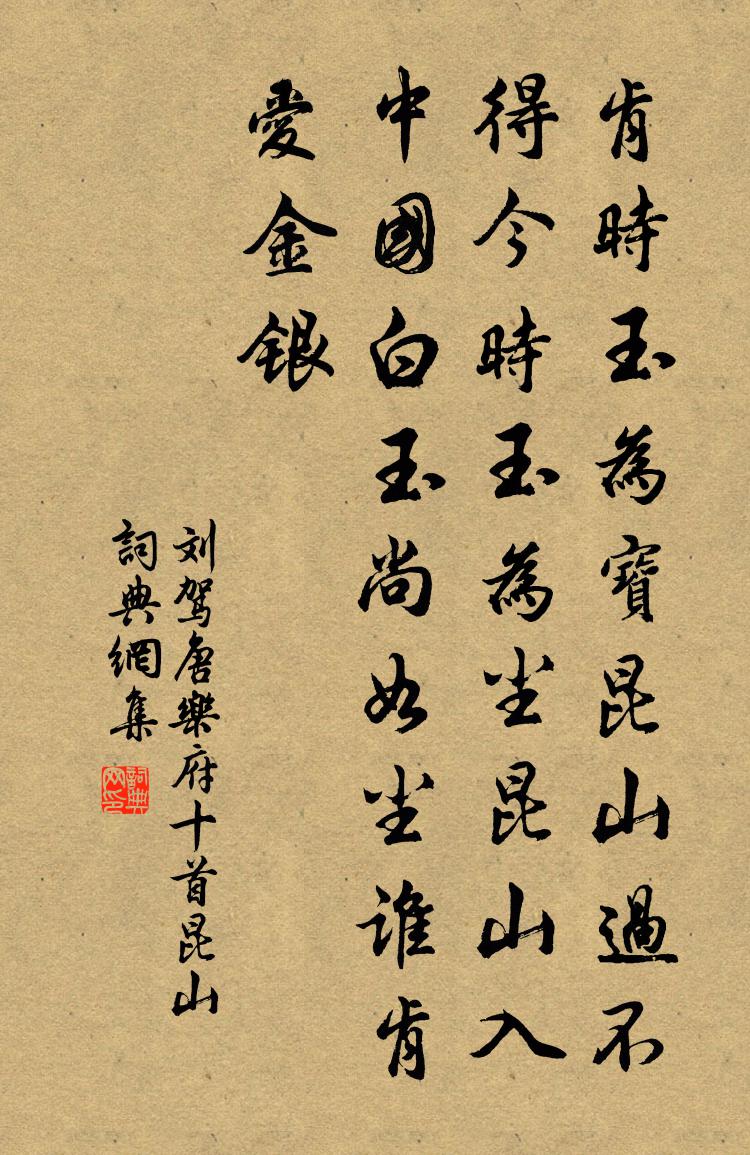 肯時玉為寶昆山過不
得今時玉為尘昆山入
中國白玉尚如尘誰肯
愛金銀
刘驾唐樂府十首昆山
詞典網集
詞典
网印